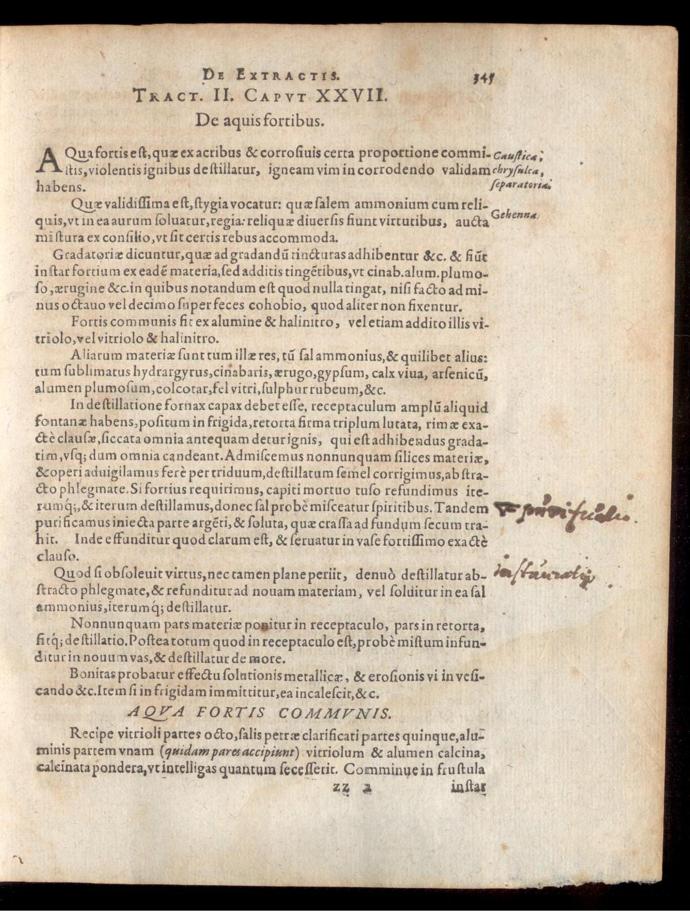 DE EXTRACTIS. 345
TRACT. II. CAPVT XXVII.
De aquis fortibus.
AQua fortis est, quæ ex acribus & corrosiuis certa proportione commi- Caustica;
stis, violentis ignibus destillatur, igneam vim in corrodendo validam chrysulca,
habens. separatoria;
Quæ validissima est, stygia vocatur: quæ salem ammonium cum reli- Gehenna.
quis, vt in ea aurum soluatur, regia: reliquæ diuersis fiunt virtutibus, aucta
mistura ex consilio, vt sit certis rebus accommoda.
Gradatoriæ dicuntur, quæ ad gradandū tincturas adhibentur &c. & fiūt
instar fortium ex eadē materia, sed additis tingētibus, vt cinab. alum. plumo-
so, ærugine &c. in quibus notandum est quod nulla tingat, nisi facto ad mi-
nus octauo vel decimo super feces cohobio, quod aliter non fixentur.
Fortis communis fit ex alumine & halinitro, vel etiam addito illis vi-
triolo, vel vitriolo & halinitro.
Aliarum materiæ sunt tum illæ res, tū sal ammonius, & quilibet alius:
tum sublimatus hydrargyrus, cinabaris, ærugo, gypsum, calx viua, arsenicū,
alumen plumosum, colcotar, fel vitri, sulphur rubeum, &c.
In destillatione fornax capax debet esse, receptaculum amplū aliquid
fontanæ habens, positum in frigida, retorta firma triplum lutata, rimæ exa-
ctè clausæ, siccata omnia antequam detur ignis, qui est adhibendus grada-
tim, vsq; dum omnia candeant. Admiscemus nonnunquam silices materiæ,
& operi aduigilamus ferè per triduum, destillatum semel corrigimus, abstra-
cto phlegmate. Si fortius requirimus, capiti mortuo tuso refundimus ite-
rumq;, & iterum destillamus, donec sal probè misceatur spiritibus. Tandem
purificamus iniecta parte argēti, & soluta, quæ crassa ad fundum secum tra- purificatio.
hit. Inde effunditur quod clarum est, & seruatur in vase fortissimo exactè
clauso.
Quod si obsoleuit virtus, nec tamen plane periit, denuò destillatur ab- instauratio
stracto phlegmate, & refunditur ad nouam materiam, vel soluitur in ea sal
ammonius, iterumq; destillatur.
Nonnunquam pars materiæ ponitur in receptaculo, pars in retorta,
fitq; destillatio. Postea totum quod in receptaculo est, probè mistum infun-
ditur in nouum vas, & destillatur de more.
Bonitas probatur effectu solutionis metallicæ, & erosionis vi in vesi-
cando &c. Item si in frigidam immittitur, ea incalescit, &c.
AQVA FORTIS COMMVNIS.
Recipe vitrioli partes octo, salis petræ clarificati partes quinque, alu-
minis partem vnam (quidam pares accipiunt) vitriolum & alumen calcina,
calcinata pondera, vt intelligas quantum secesserit. Comminue in frustula
zz 2 instar